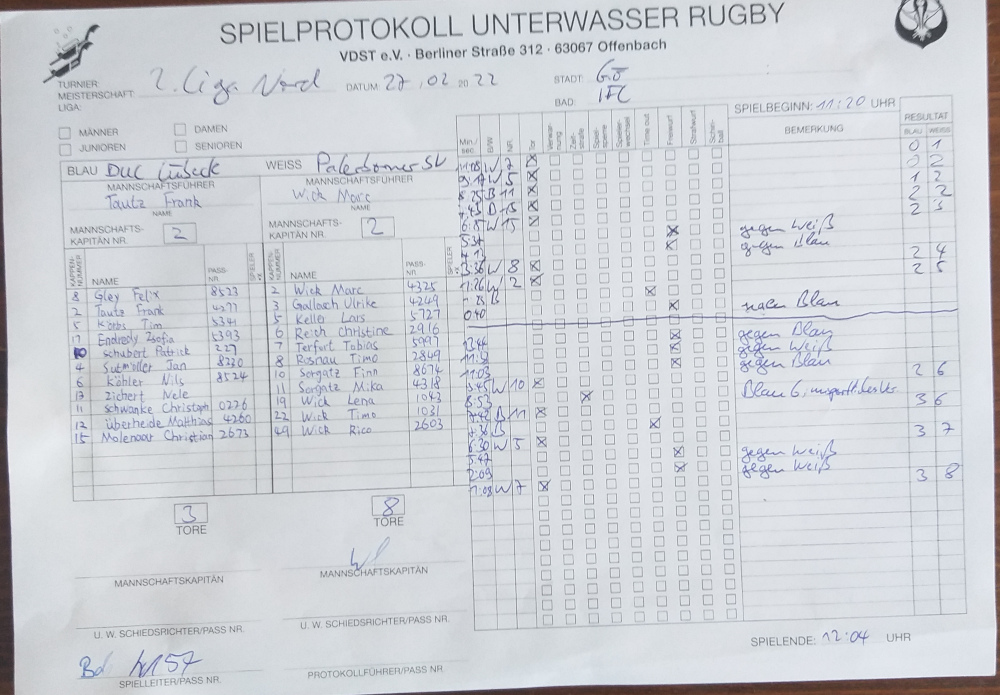 SPIELPROTOKOLL UNTERWASSER RUGBY
VDST e.V. · Berliner Straße 312 · 63067 Offenbach
TURNIER
MEISTERSCHAFT 2. Liga Nord DATUM: 27.02 20 22 STADT:
LIGA: BAD:
SPIELBEGINN: 11:20 UHR
MÄNNER DAMEN
JUNIOREN SENIOREN
BLAU DUC Lübeck WEISS Paderborner SV
MANNSCHAFTSFÜHRER MANNSCHAFTSFÜHRER
Tautz Frank Wick Marc
NAME NAME
MANNSCHAFTS- MANNSCHAFTS-
KAPITÄN NR. 2 KAPITÄN NR. 2
KAPPEN-NUMMER NAME PASS-NR. SPIELER KAPPEN-NUMMER NAME PASS-NR. SPIELER
8 Gley Felix 8523 2 Wick Marc 4325
2 Tautz Frank 4271 3 Gallach Ulrike 4249
5 Tim 5341 5 Keller Lars 5727
Endredy Zsofia 5393 6 Reich Christine 2916
10 Schubert Patrick 227 7 Terfurt Tobias 5997
4 Sutmöller Jan 8230 8 Rosnau Timo 2849
6 Köhler Nils 8524 10 Sorgatz Finn 8674
13 Zichert Nele 11 Sorgatz Mika 4318
11 Schwanke Christoph 0226 19 Wick Lena 1043
12 Überheide Matthias 4260 22 Wick Timo 1031
15 Molenaar Christian 2673 49 Wick Rico 2603
3 8
TORE TORE
MANNSCHAFTSKAPITÄN MANNSCHAFTSKAPITÄN
U. W. SCHIEDSRICHTER/PASS NR. U. W. SCHIEDSRICHTER/PASS NR.
SPIELLEITER/PASS NR. PROTOKOLLFÜHRER/PASS NR.
Min./sec. B/W NR. Tor Verwarnung Zeitstrafe Spielsperre Spielerwechsel Time out Freiwurf Strafwurf Schiriball BEMERKUNG RESULTAT
BLAU WEISS
W 7 0 1
W 5 0 2
B 11 1 2
B 15 2 2
W 15 2 3
5:34 gegen Weiß
gegen Blau
W 8 2 4
W 2 2 5
B
0:40 gegen Blau
gegen Blau
gegen Weiß
11:03 gegen Blau
W 10 2 6
8:53 Blau 6,
B 11 3 6
B
6:30 W 5 3 7
5:47 gegen Weiß
2:09 gegen Weiß
1:08 W 7 3 8
SPIELENDE: 12:04 UHR